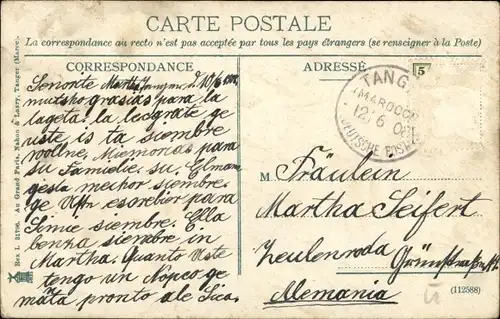 CARTE POSTALE
La correspondance au recto n'est pas acceptée par tous les pays étrangers (se renseigner à la Poste)
CORRESPONDANCE
ADRESSE
Senorite Martha Tanger d. 10/6
mutsho grasias para la
lageta. la lecgrate ge
uiste is ta siembre
wollne, Miemorias para
su Familie. su.
gesta mechor siembre.
ge escrebior para
siembre. Ella
benha siembre in
Martha. Quanto Uste
tengo un ge
mata pronto ale
5
TANGER
(MAROCCO)
12 6
DEUTSCHE POST
M Fräulein
Martha Seifert
Zeulenroda
Alemania
(112588)
Rex L. 21706. Au Grand Paris, Nahon & Lasry, Tanger (Maroc).